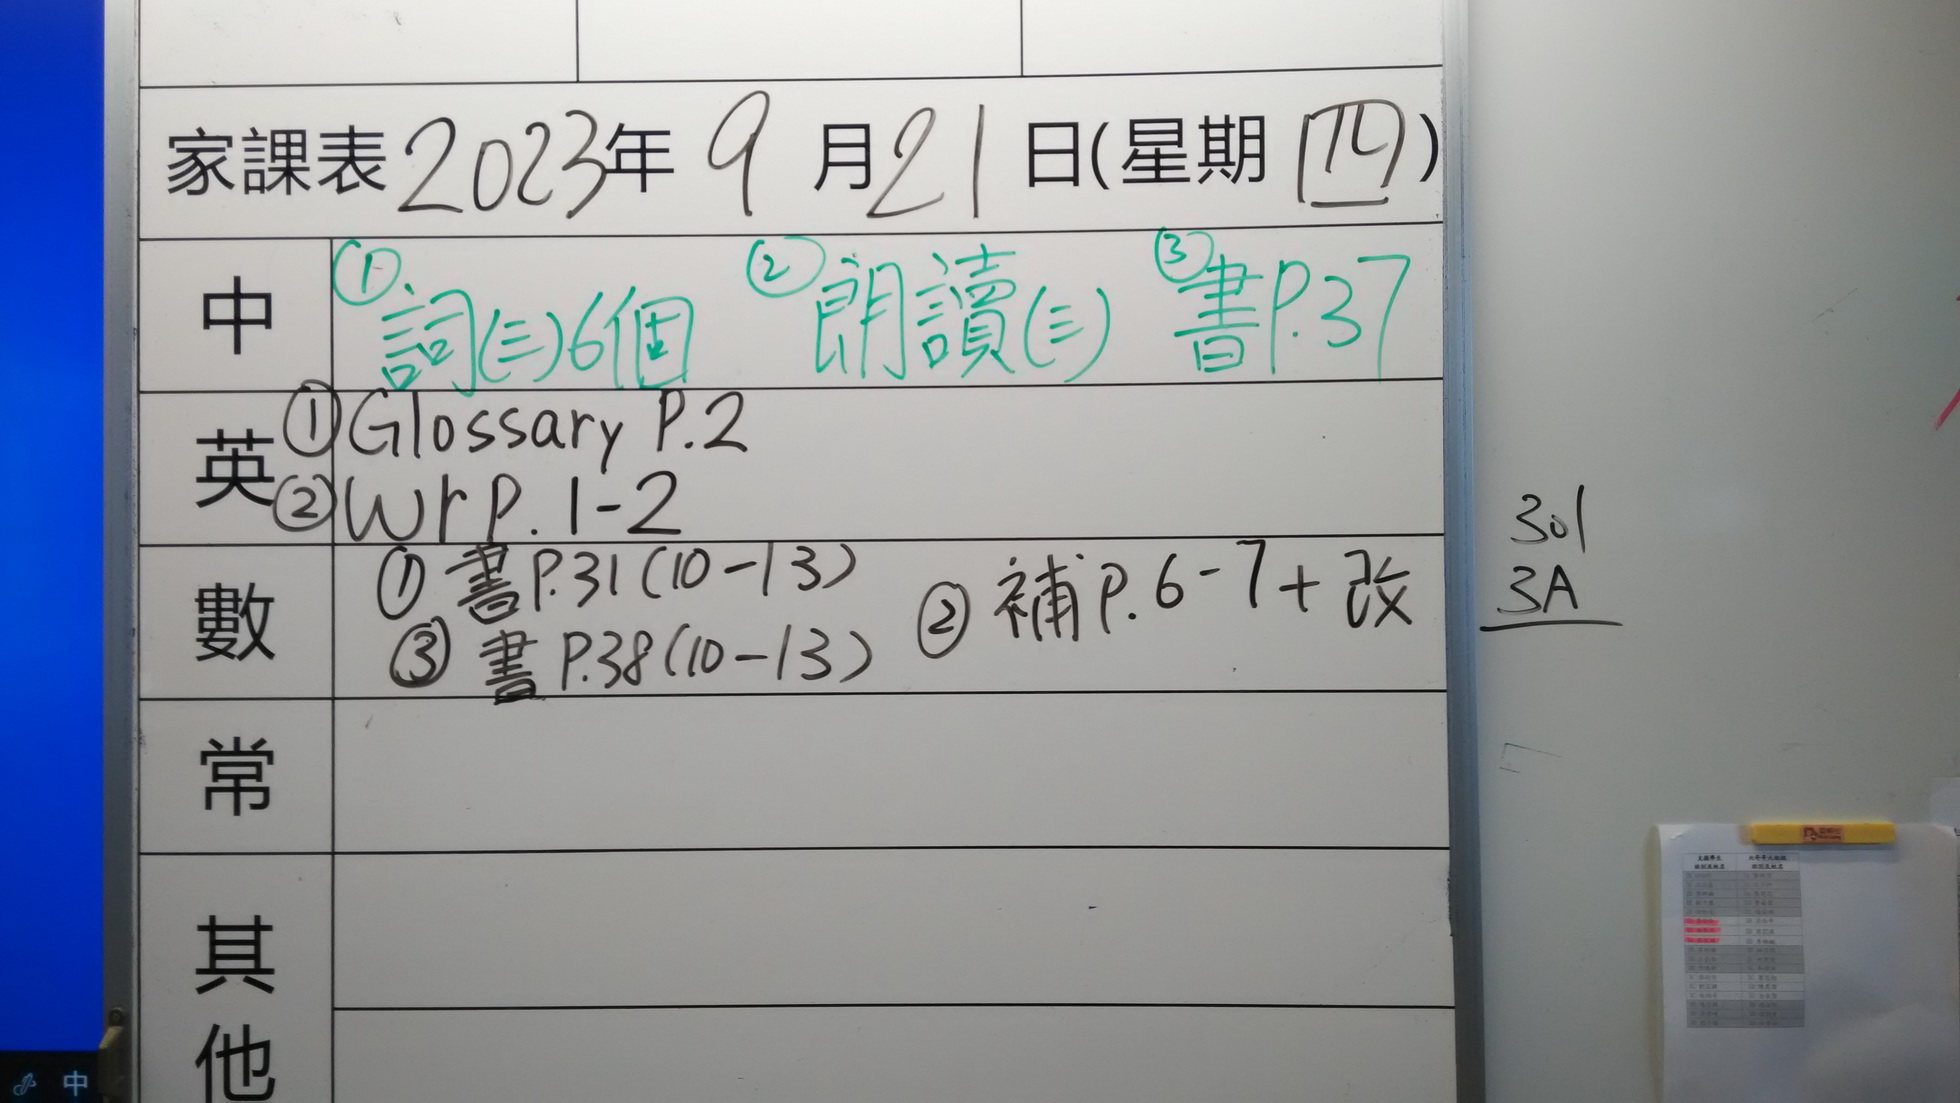 家課表 2023年 9月21日(星期四)
中 ①詞(三)6個 ②朗讀(三) ③書P.37
英 ①Glossary P.2
②Wr P. 1-2
數 ①書P.31(10-13) ②補P.6-7+改
③書P.38(10-13)
常
其他
301
3A
中